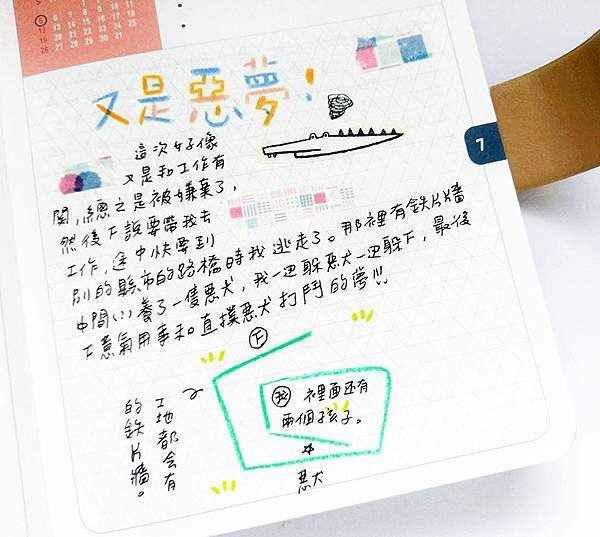 5 6 7 8 9 10 11
12 13 14 15 16 17 18
19 20 21 22 23 24 25
26 27 28 29 30 31
又是惡夢!
7
這次好像
又是和工作有
關,總之是被嫌棄了,
然後下說要帶我去
工作,途中快要到
別的縣市的路橋時我逃走了。那裡有鐵片牆
中間(?)養了一隻惡犬,我一边躲惡犬一边躲下,最後
下意氣用事和直接惡犬打鬥的夢!!!
下
我 裡面还有
兩個孩子。
惡犬
工地都会有
的鉄片牆。